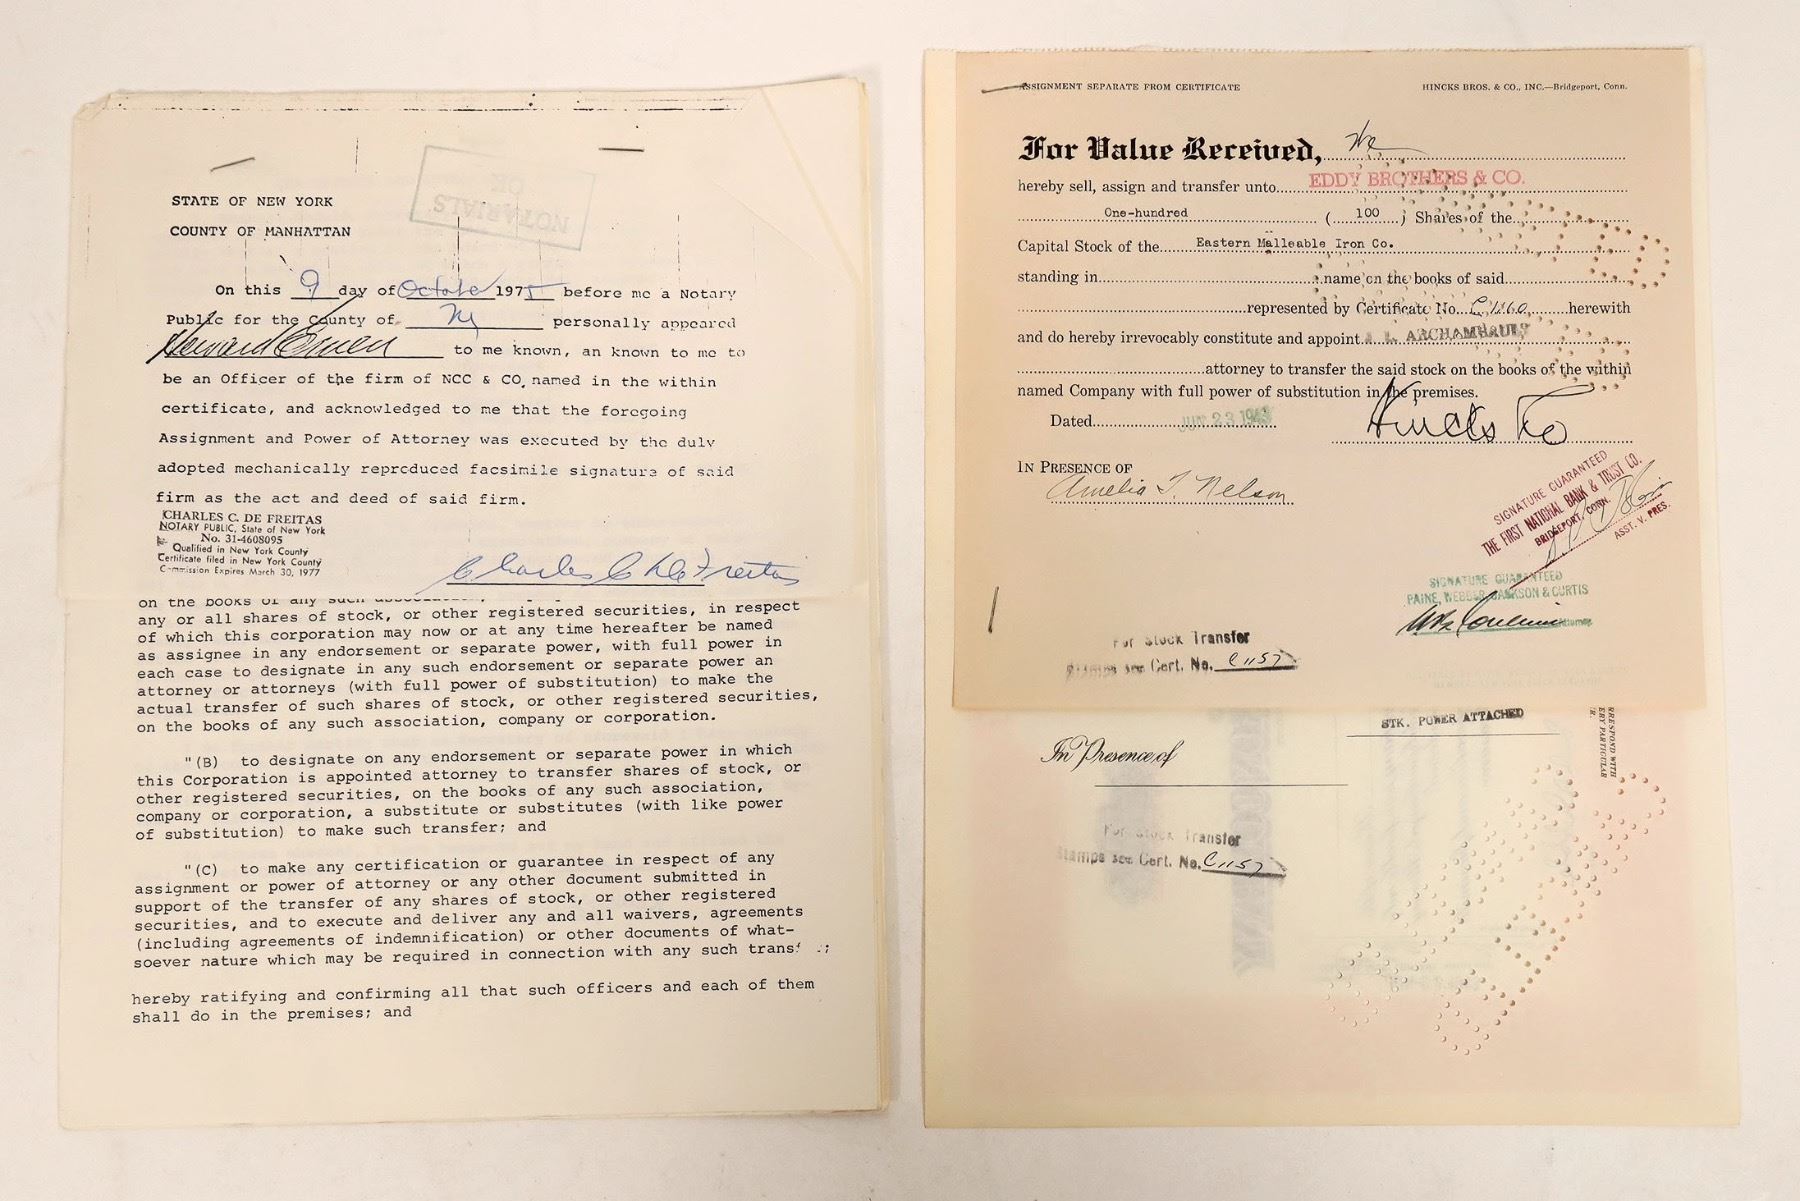 STATE OF NEW YORK
COUNTY OF MANHATTAN
NOTARIALS
OK
On this 9 day of October 1975 before me a Notary
Public for the County of NY personally appeared
to me known, an known to me to
be an Officer of the firm of NCC & CO. named in the within
certificate, and acknowledged to me that the foregoing
Assignment and Power of Attorney was executed by the duly
adopted mechanically reproduced facsimile signature of said
firm as the act and deed of said firm.
CHARLES C. DE FREITAS
NOTARY PUBLIC, State of New York
No. 31-4608095
Qualified in New York County
Certificate filed in New York County
Commission Expires March 30, 1977
Charles C De Freitas
on the books of any such
any or all shares of stock, or other registered securities, in respect
of which this corporation may now or at any time hereafter be named
as assignee in any endorsement or separate power, with full power in
each case to designate in any such endorsement or separate power an
attorney or attorneys (with full power of substitution) to make the
actual transfer of such shares of stock, or other registered securities,
on the books of any such association, company or corporation.
"(B) to designate on any endorsement or separate power in which
this Corporation is appointed attorney to transfer shares of stock, or
other registered securities, on the books of any such association,
company or corporation, a substitute or substitutes (with like power
of substitution) to make such transfer; and
"(C) to make any certification or guarantee in respect of any
assignment or power of attorney or any other document submitted in
support of the transfer of any shares of stock, or other registered
securities, and to execute and deliver any and all waivers, agreements
(including agreements of indemnification) or other documents of what-
soever nature which may be required in connection with any such
hereby ratifying and confirming all that such officers and each of them
shall do in the premises; and
ASSIGNMENT SEPARATE FROM CERTIFICATE
HINCKS BROS. & CO., INC.—Bridgeport, Conn.
For Value Received, We
hereby sell, assign and transfer unto EDDY BROTHERS & CO.
One-hundred (100) Shares of the
Capital Stock of the Eastern Malleable Iron Co.
standing in name on the books of said
represented by Certificate No. C1160 herewith
and do hereby irrevocably constitute and appoint J. L. ARCHAMBAULT
attorney to transfer the said stock on the books of the within
named Company with full power of substitution in the premises.
Dated 23 1943
Hincks & Co
IN PRESENCE OF
Amelia T. Nelson
SIGNATURE GUARANTEED
THE FIRST NATIONAL BANK & TRUST CO.
BRIDGEPORT, CONN.
ASST. V. PRES.
SIGNATURE GUARANTEED
PAINE, WEBBER, JACKSON & CURTIS
Attorney
For Stock Transfer
Stamps see Cert. No. C1157
STK. POWER ATTACHED
In Presence of
For Stock Transfer
Stamps see Cert. No. C1157